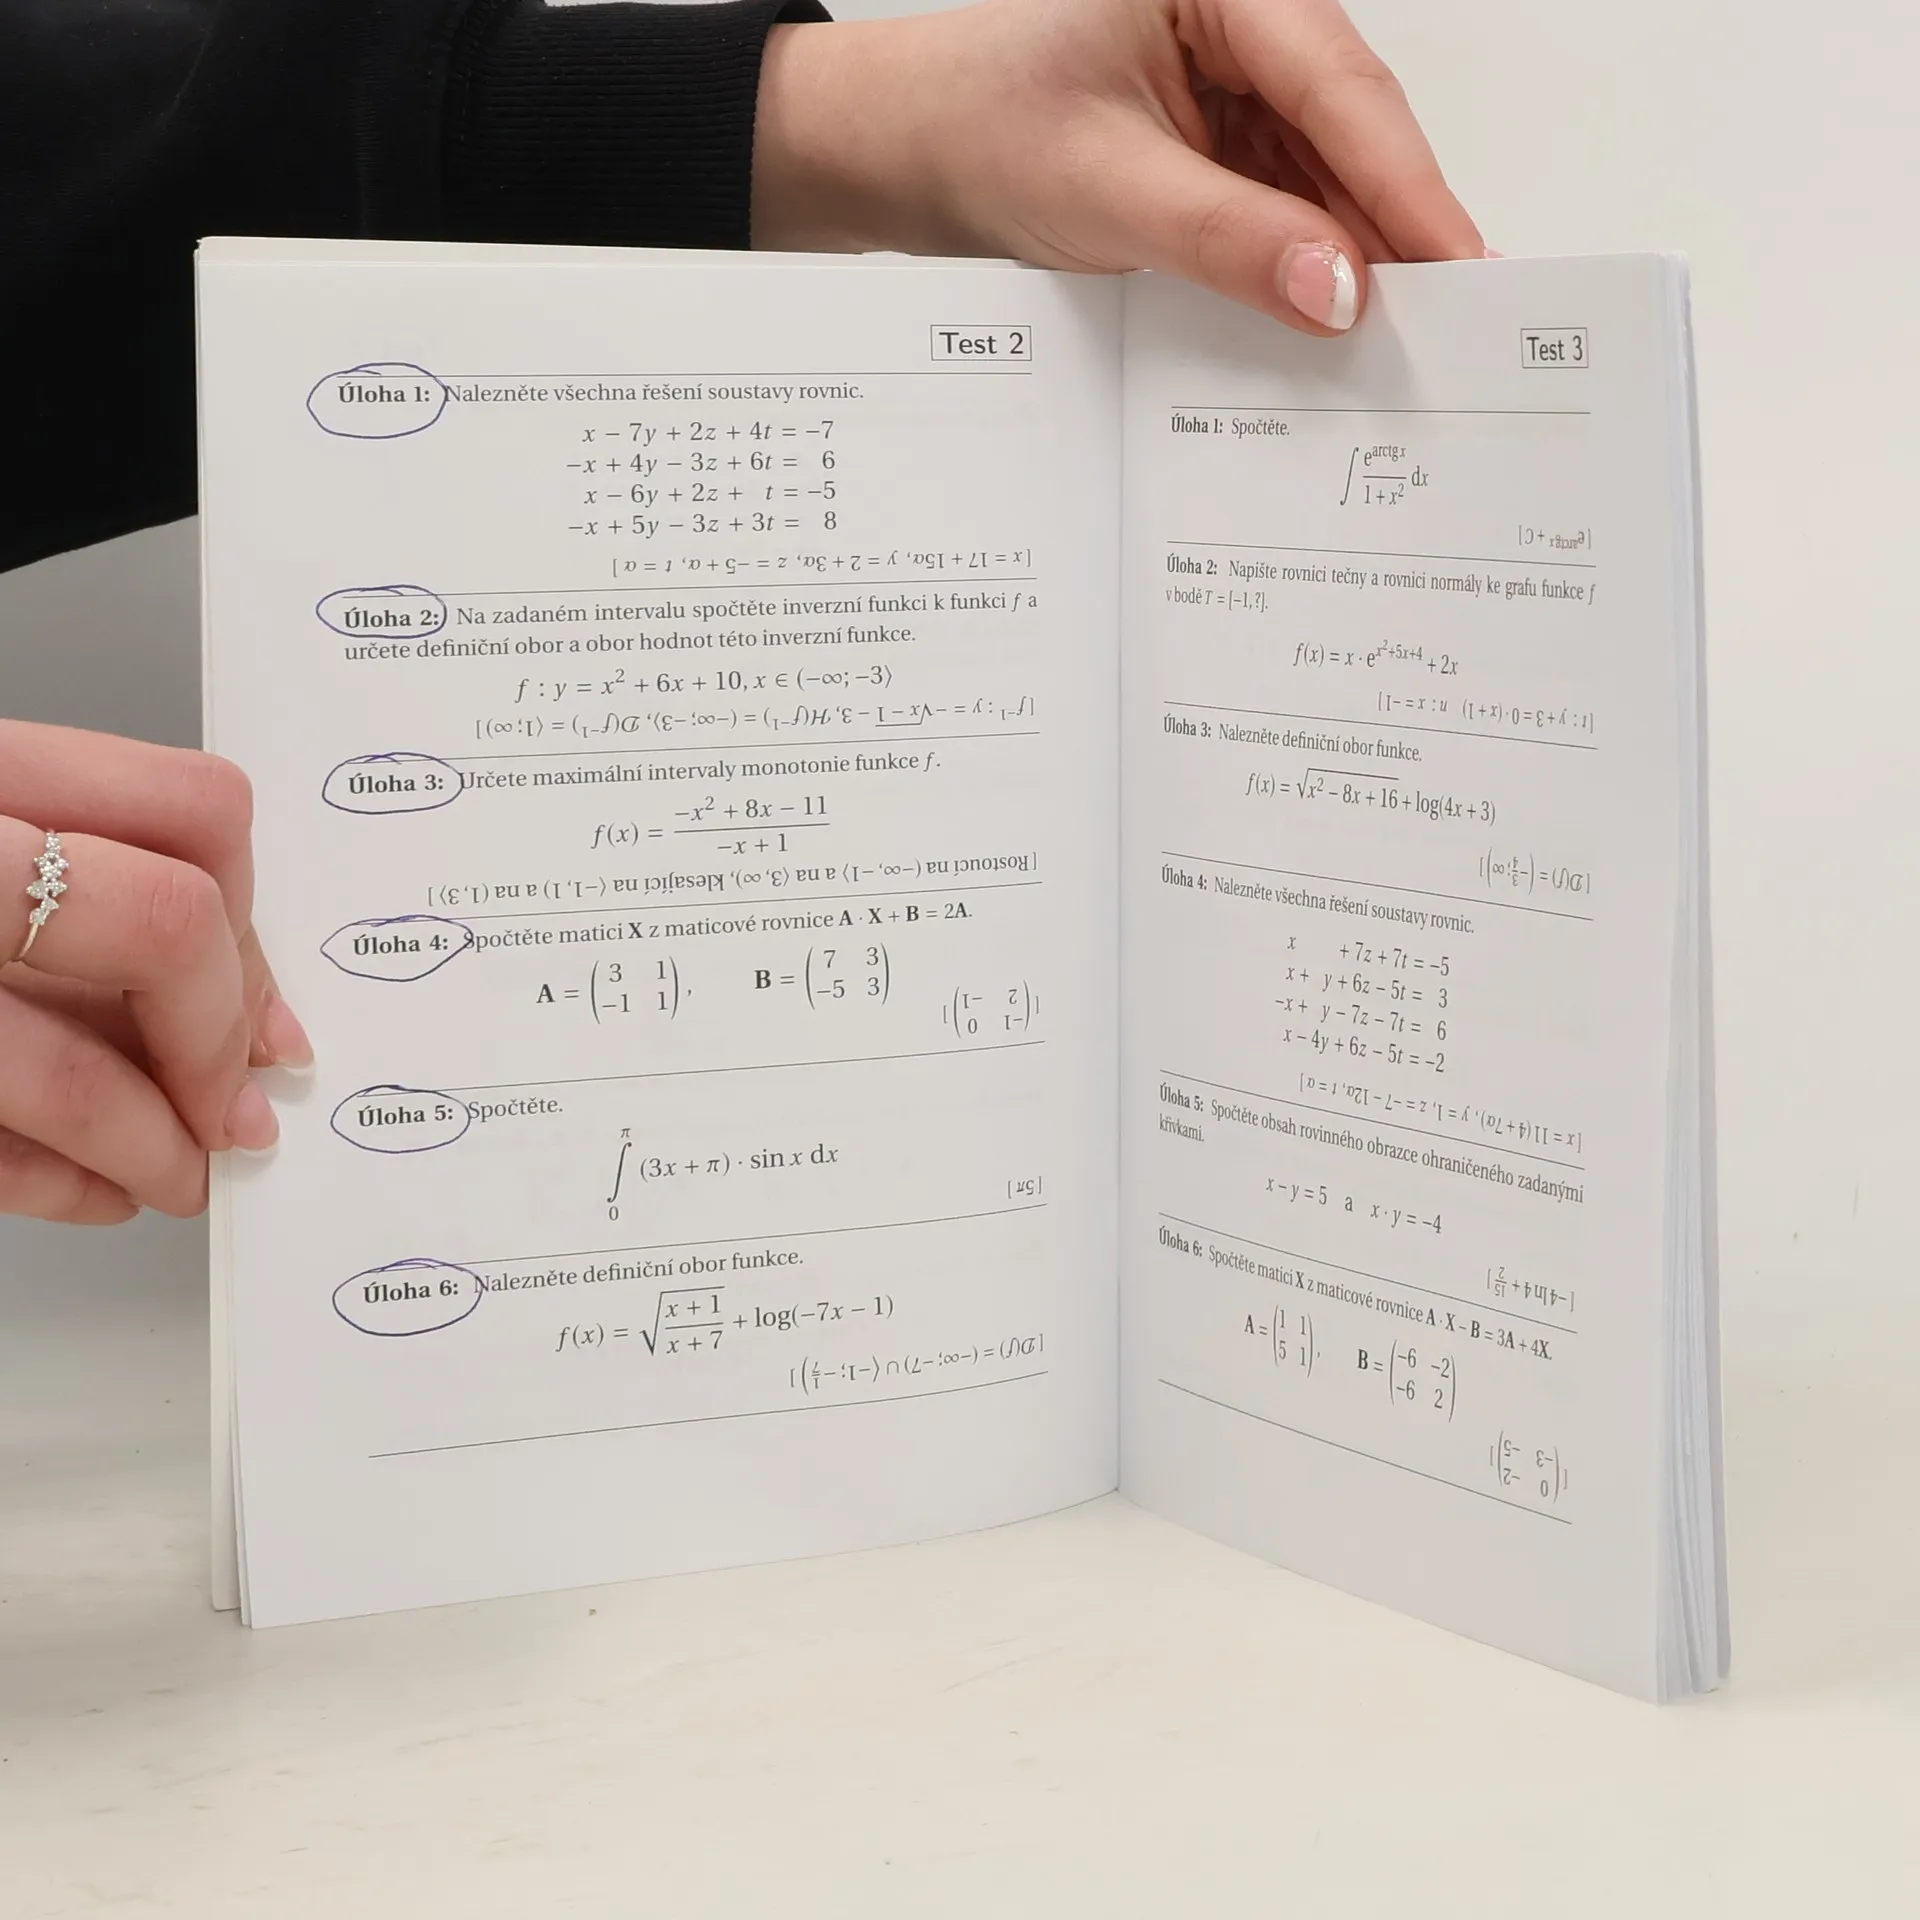 Test 2
Úloha 1: Nalezněte všechna řešení soustavy rovnic.
x − 7y + 2z + 4t = −7
−x + 4y − 3z + 6t = 6
x − 6y + 2z + t = −5
−x + 5y − 3z + 3t = 8
[x = 17 + 15a, y = 2 + 3a, z = −5 + a, t = a]
Úloha 2: Na zadaném intervalu spočtěte inverzní funkci k funkci f a
určete definiční obor a obor hodnot této inverzní funkce.
f : y = x² + 6x + 10, x ∈ (−∞; −3⟩
[f⁻¹ : y = −√(x − 1) − 3, H(f⁻¹) = (−∞; −3⟩, D(f⁻¹) = ⟨1; ∞)]
Úloha 3: Určete maximální intervaly monotonie funkce f.
f(x) = (−x² + 8x − 11)/(−x + 1)
[Rostoucí na (−∞, −1⟩ a na ⟨3, ∞), klesající na ⟨−1, 1) a na (1, 3⟩]
Úloha 4: Spočtěte matici X z maticové rovnice A · X + B = 2A.
A = (3 1; −1 1), B = (7 3; −5 3)
[(−1 0; 2 −1)]
Úloha 5: Spočtěte.
∫₀^π (3x + π) · sin x dx
[5π]
Úloha 6: Nalezněte definiční obor funkce.
f(x) = √((x + 1)/(x + 7)) + log(−7x − 1)
[D(f) = (−∞; −7) ∪ ⟨−1; −1/7)]
Test 3
Úloha 1: Spočtěte.
∫ e^(arctg x)/(1 + x²) dx
[e^(arctg x) + C]
Úloha 2: Napište rovnici tečny a rovnici normály ke grafu funkce f
v bodě T = [−1, ?].
f(x) = x · e^(x²+5x+4) + 2x
[t : y + 3 = 0 · (x + 1) n : x = −1]
Úloha 3: Nalezněte definiční obor funkce.
f(x) = √(x² − 8x + 16) + log(4x + 3)
[D(f) = (−3/4; ∞)]
Úloha 4: Nalezněte všechna řešení soustavy rovnic.
x + 7z + 7t = −5
x + y + 6z − 5t = 3
−x + y − 7z − 7t = 6
x − 4y + 6z − 5t = −2
[x = 11(4 + 7a), y = 1, z = −7 − 12a, t = a]
Úloha 5: Spočtěte obsah rovinného obrazce ohraničeného zadanými
křivkami.
x − y = 5 a x · y = −4
[−4 ln 4 + 15/2]
Úloha 6: Spočtěte matici X z maticové rovnice A · X − B = 3A + 4X.
A = (1 1; 5 1), B = (−6 −2; −6 2)
[(0 −2; −3 −5)]